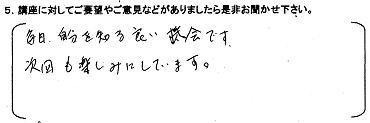 5. 講座に対してご要望やご意見などがありましたら是非お聞かせ下さい。
毎日 自分を知る良い機会です
次回も楽しみにしています。